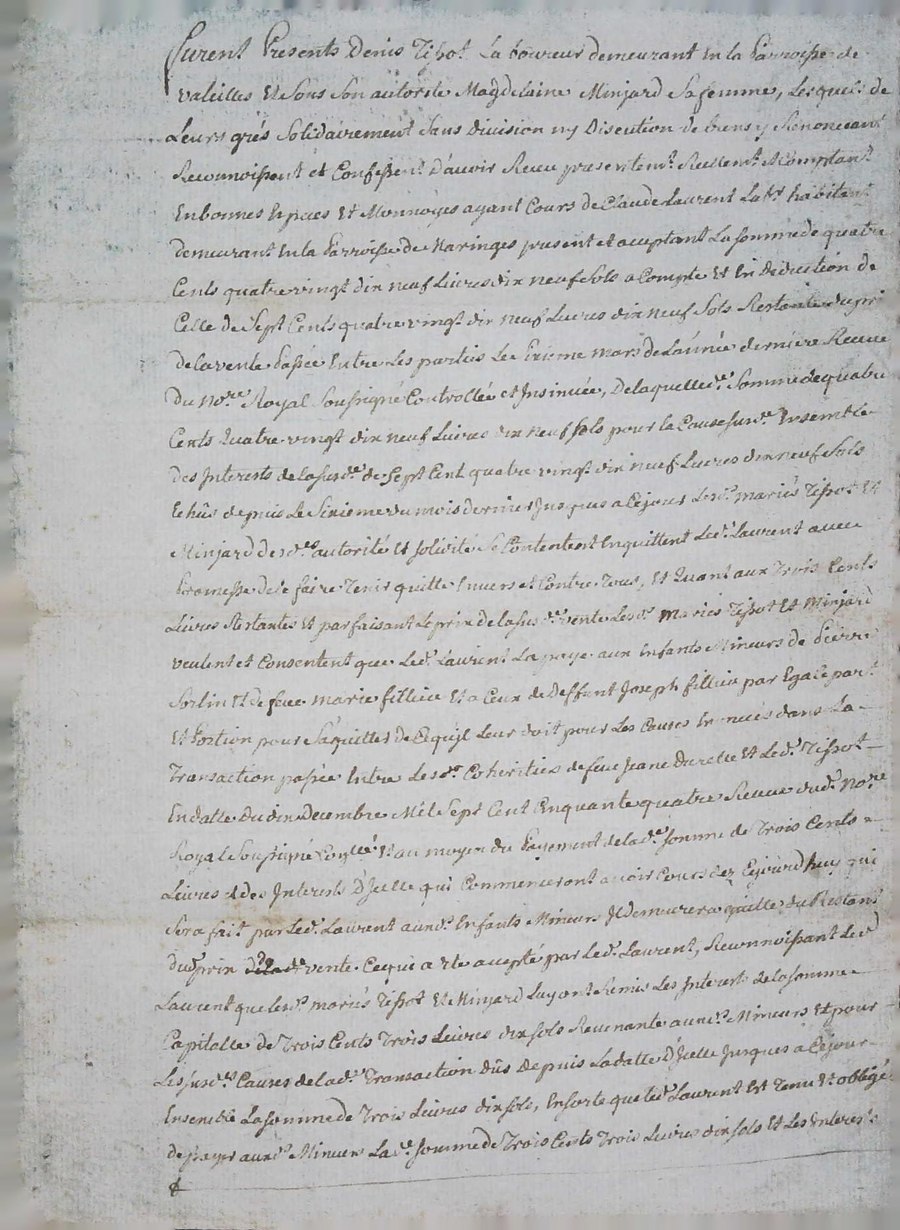 furent Presents Denis Tissot Laboureur demeurant En la Parroisse de
valeilles Et sous son autorite Magdelaine Minjard sa femme, Lesquels de
Leurs grés solidairement sans division ny Discution de biens y Renonceant
Reconnoissent et Confessent d'avoir Receu presentemt. Reellemt. & Comptant
En bonnes Especes Et Monnoyes ayant Cours de Claude Laurent Labr. habitant
demeurant En la Parroisse de Maringes present et aceptant La somme de quatre
Cents quatre vingt dix neuf Livres dix neuf sols a Compte Et En Deduction de
Celle de Sept Cents quatre vingt dix neuf Livres dix neuf sols Restante du prix
de la vente Passée Entre Les parties Le Sixieme mars de L'année derniere Receue
Du Nore. Royal soussigné Controllée et Insinuée, De laquelle de. somme de quatre
Cents quatre vingt dix neuf Livres dix neuf sols pour la Cause susde. Ensemble
des Interests de la susde. de Sept Cent quatre vingt dix neuf Livres dix neuf sols
Echûs depuis Le Sixieme du mois dernier Jusques a Cejour Lesd. mariés Tissot Et
Minjard de de. autorité Et solidité se Contentent Enquittent Led. Laurent avec
Promesse de le faire Tenir quitte Envers et Contre Tous, Et Quant aux Trois Cents
Livres Restantes Et parfaisant Le prix de la susde. vente Lesd. Mariés Tissot Et Minjard
veulent et Consentent que Led. Laurent La paye aux Enfants Mineurs de Pierre
Sorlin Et de feue marie filliou Et a Ceux de Deffunt Joseph filliou par Egale part
Et Portion pour s'aquitter de Cequ'jl Leur doit pour Les Causes Enoncées dans La
Transaction passée Entre Lesd. Coheritiers de feue Jeane Et Led. Tissot
En datte du dix Decembre Mil Sept Cent Cinquante quatre Receue dud. Nore.
Royal soussigné Conllé. Et au moyen du Payement de lade. somme de Trois Cents
Livres & des Interests D'jcelle qui Commenceront avoir Cours dez Cejourd'huy qui
Sera fait par Led. Laurent auxd. Enfants Mineurs Jl demeurera quitte du Restant
dud. prix de lade. vente Cequi a eté acepté par Led. Laurent, Reconnoissant Led.
Laurent que lesd. mariés Tissot Et Minjard Luy ont Remis Les Interests de la somme
Capitalle de Trois Cents Trois Livres dix sols Revenante auxd. Mineurs Et pour
Les susdes. Causes de lade. Transaction dûs Depuis La datte D'jcelle Jusques a Cejour
Ensemble La somme de Trois Livres dix sols, Ensorte que led. Laurent Est Tenu Et obligé
de payer auxd. Mineurs Lade. somme de Trois Cents Trois Livres dix sols Et Les Interests